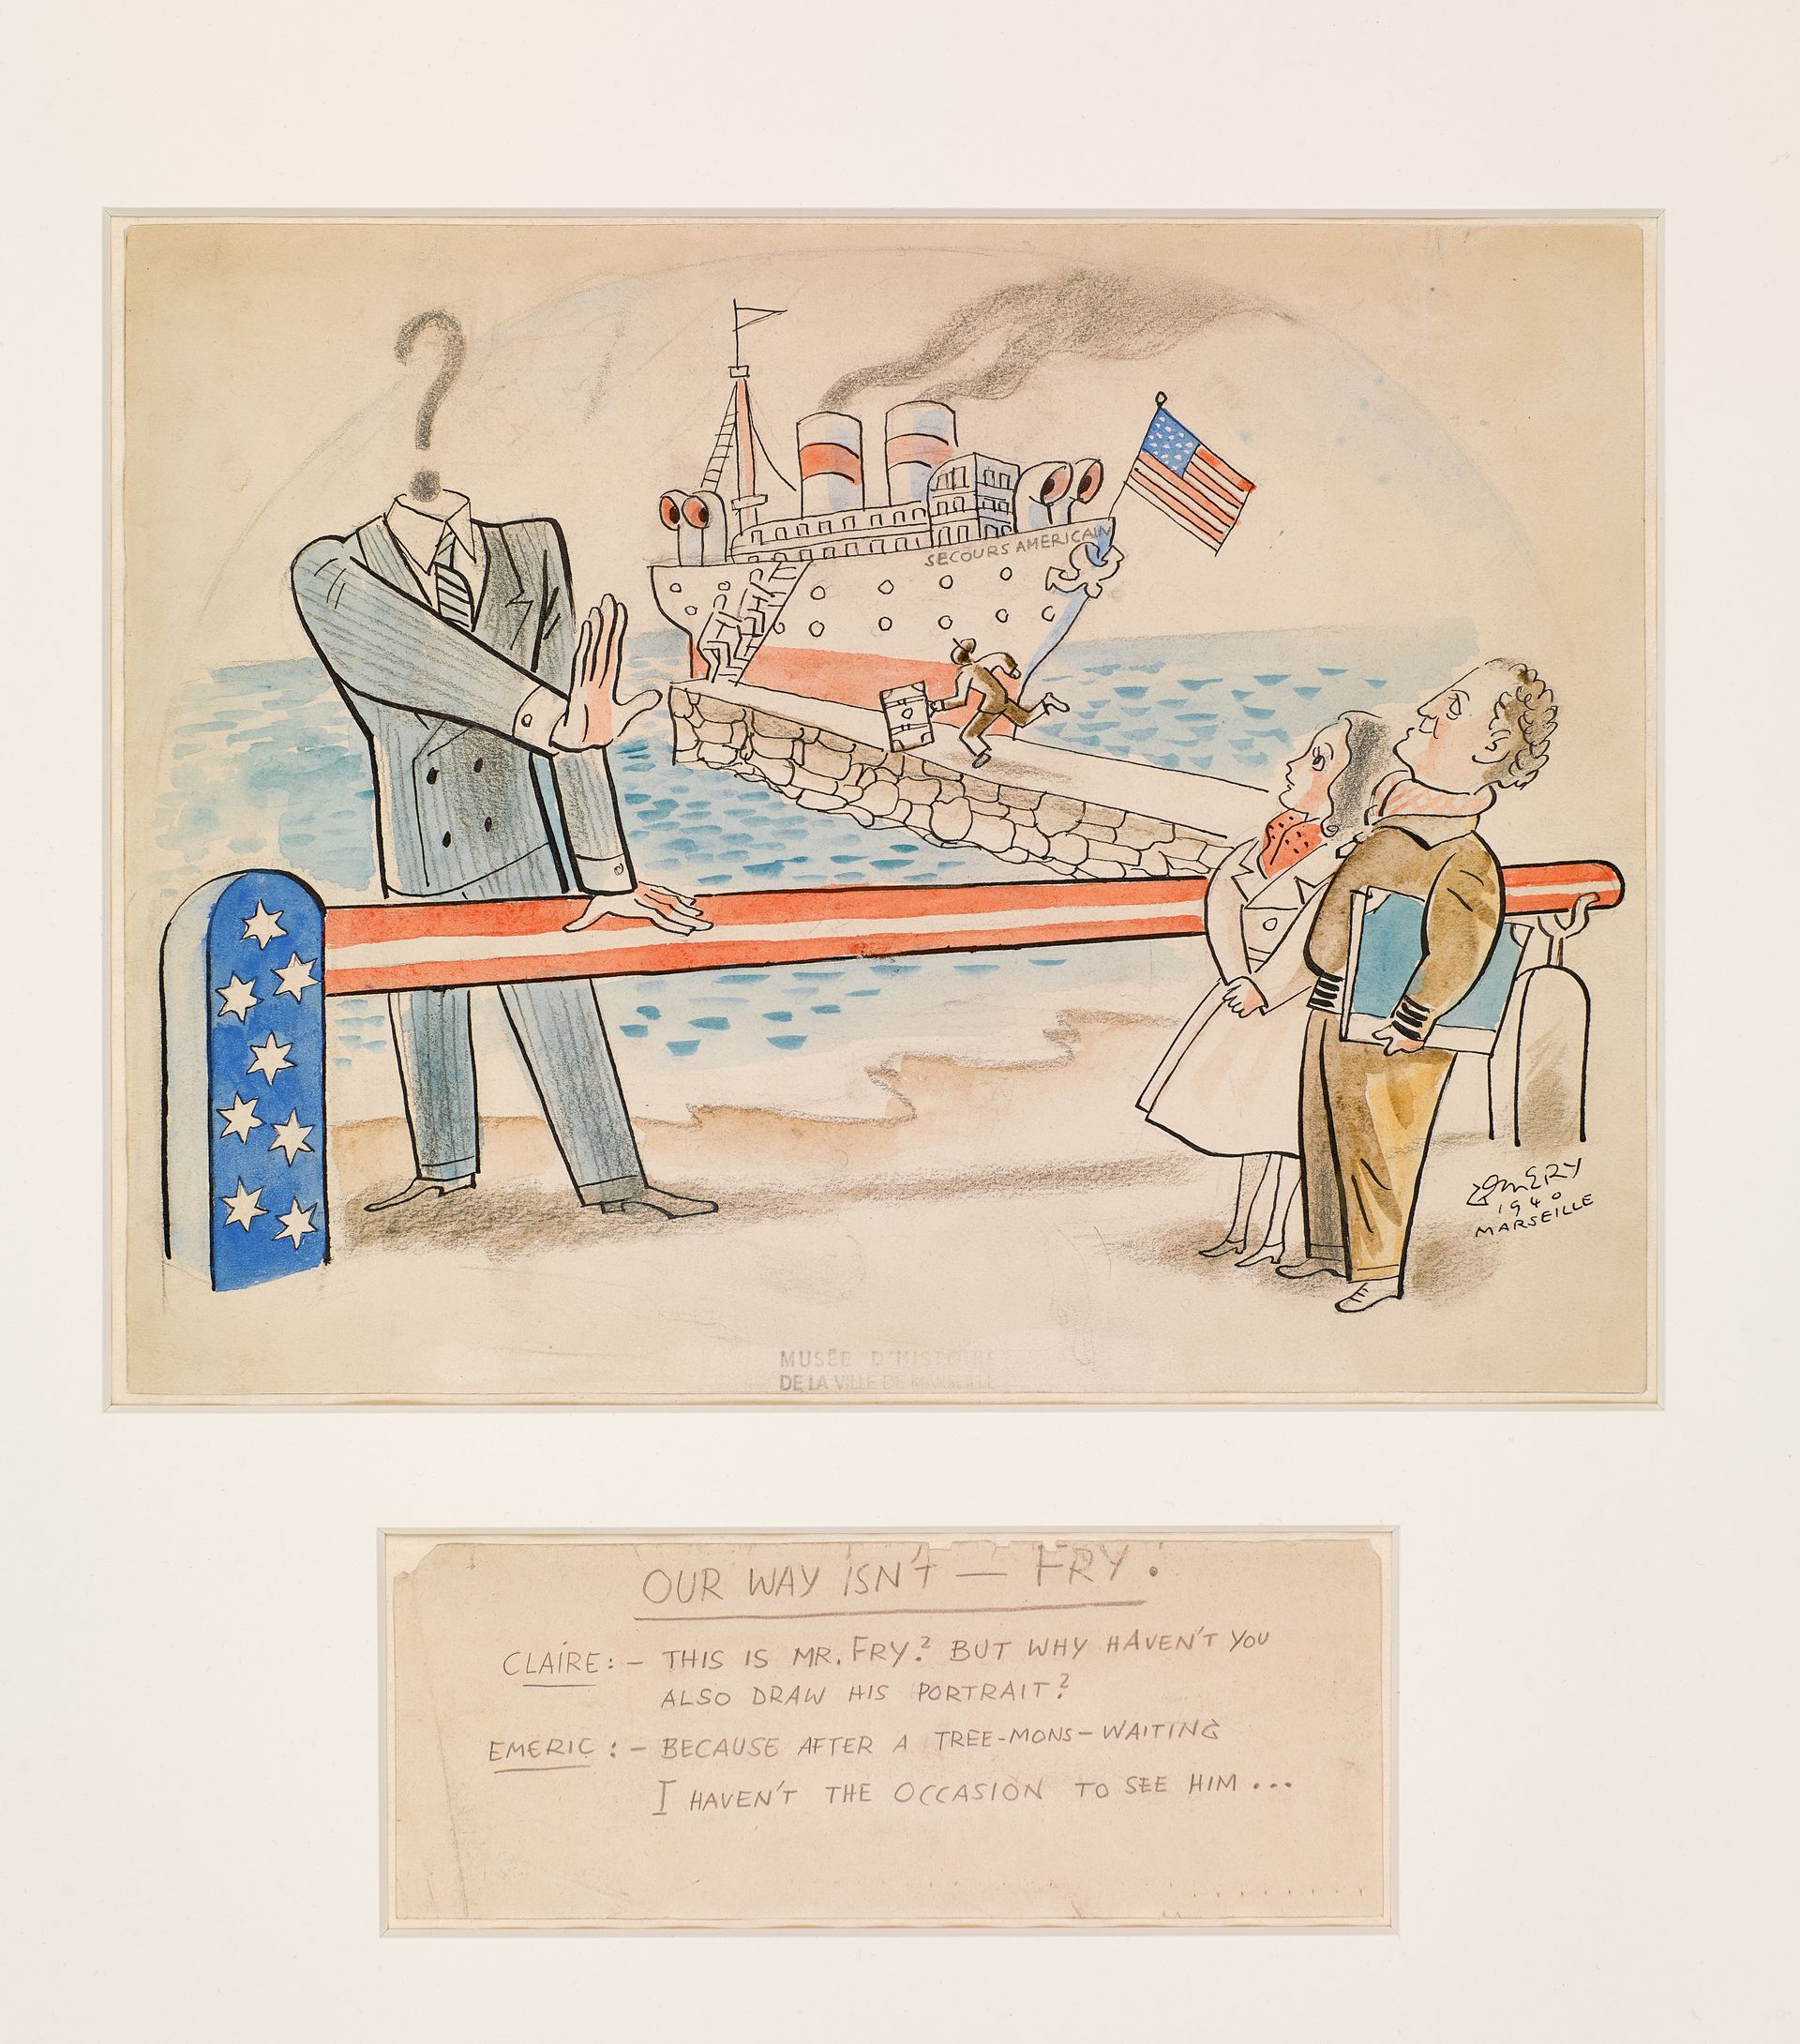 ?
SECOURS AMERICAIN
EMERY
1940
MARSEILLE
MUSÉE D'HISTOIRE
DE LA VILLE DE MARSEILLE
OUR WAY ISN'T — FRY!
CLAIRE: – THIS IS MR. FRY? BUT WHY HAVEN'T YOU
ALSO DRAW HIS PORTRAIT?
EMERIC: – BECAUSE AFTER A TREE-MONS-WAITING
I HAVEN'T THE OCCASION TO SEE HIM ...